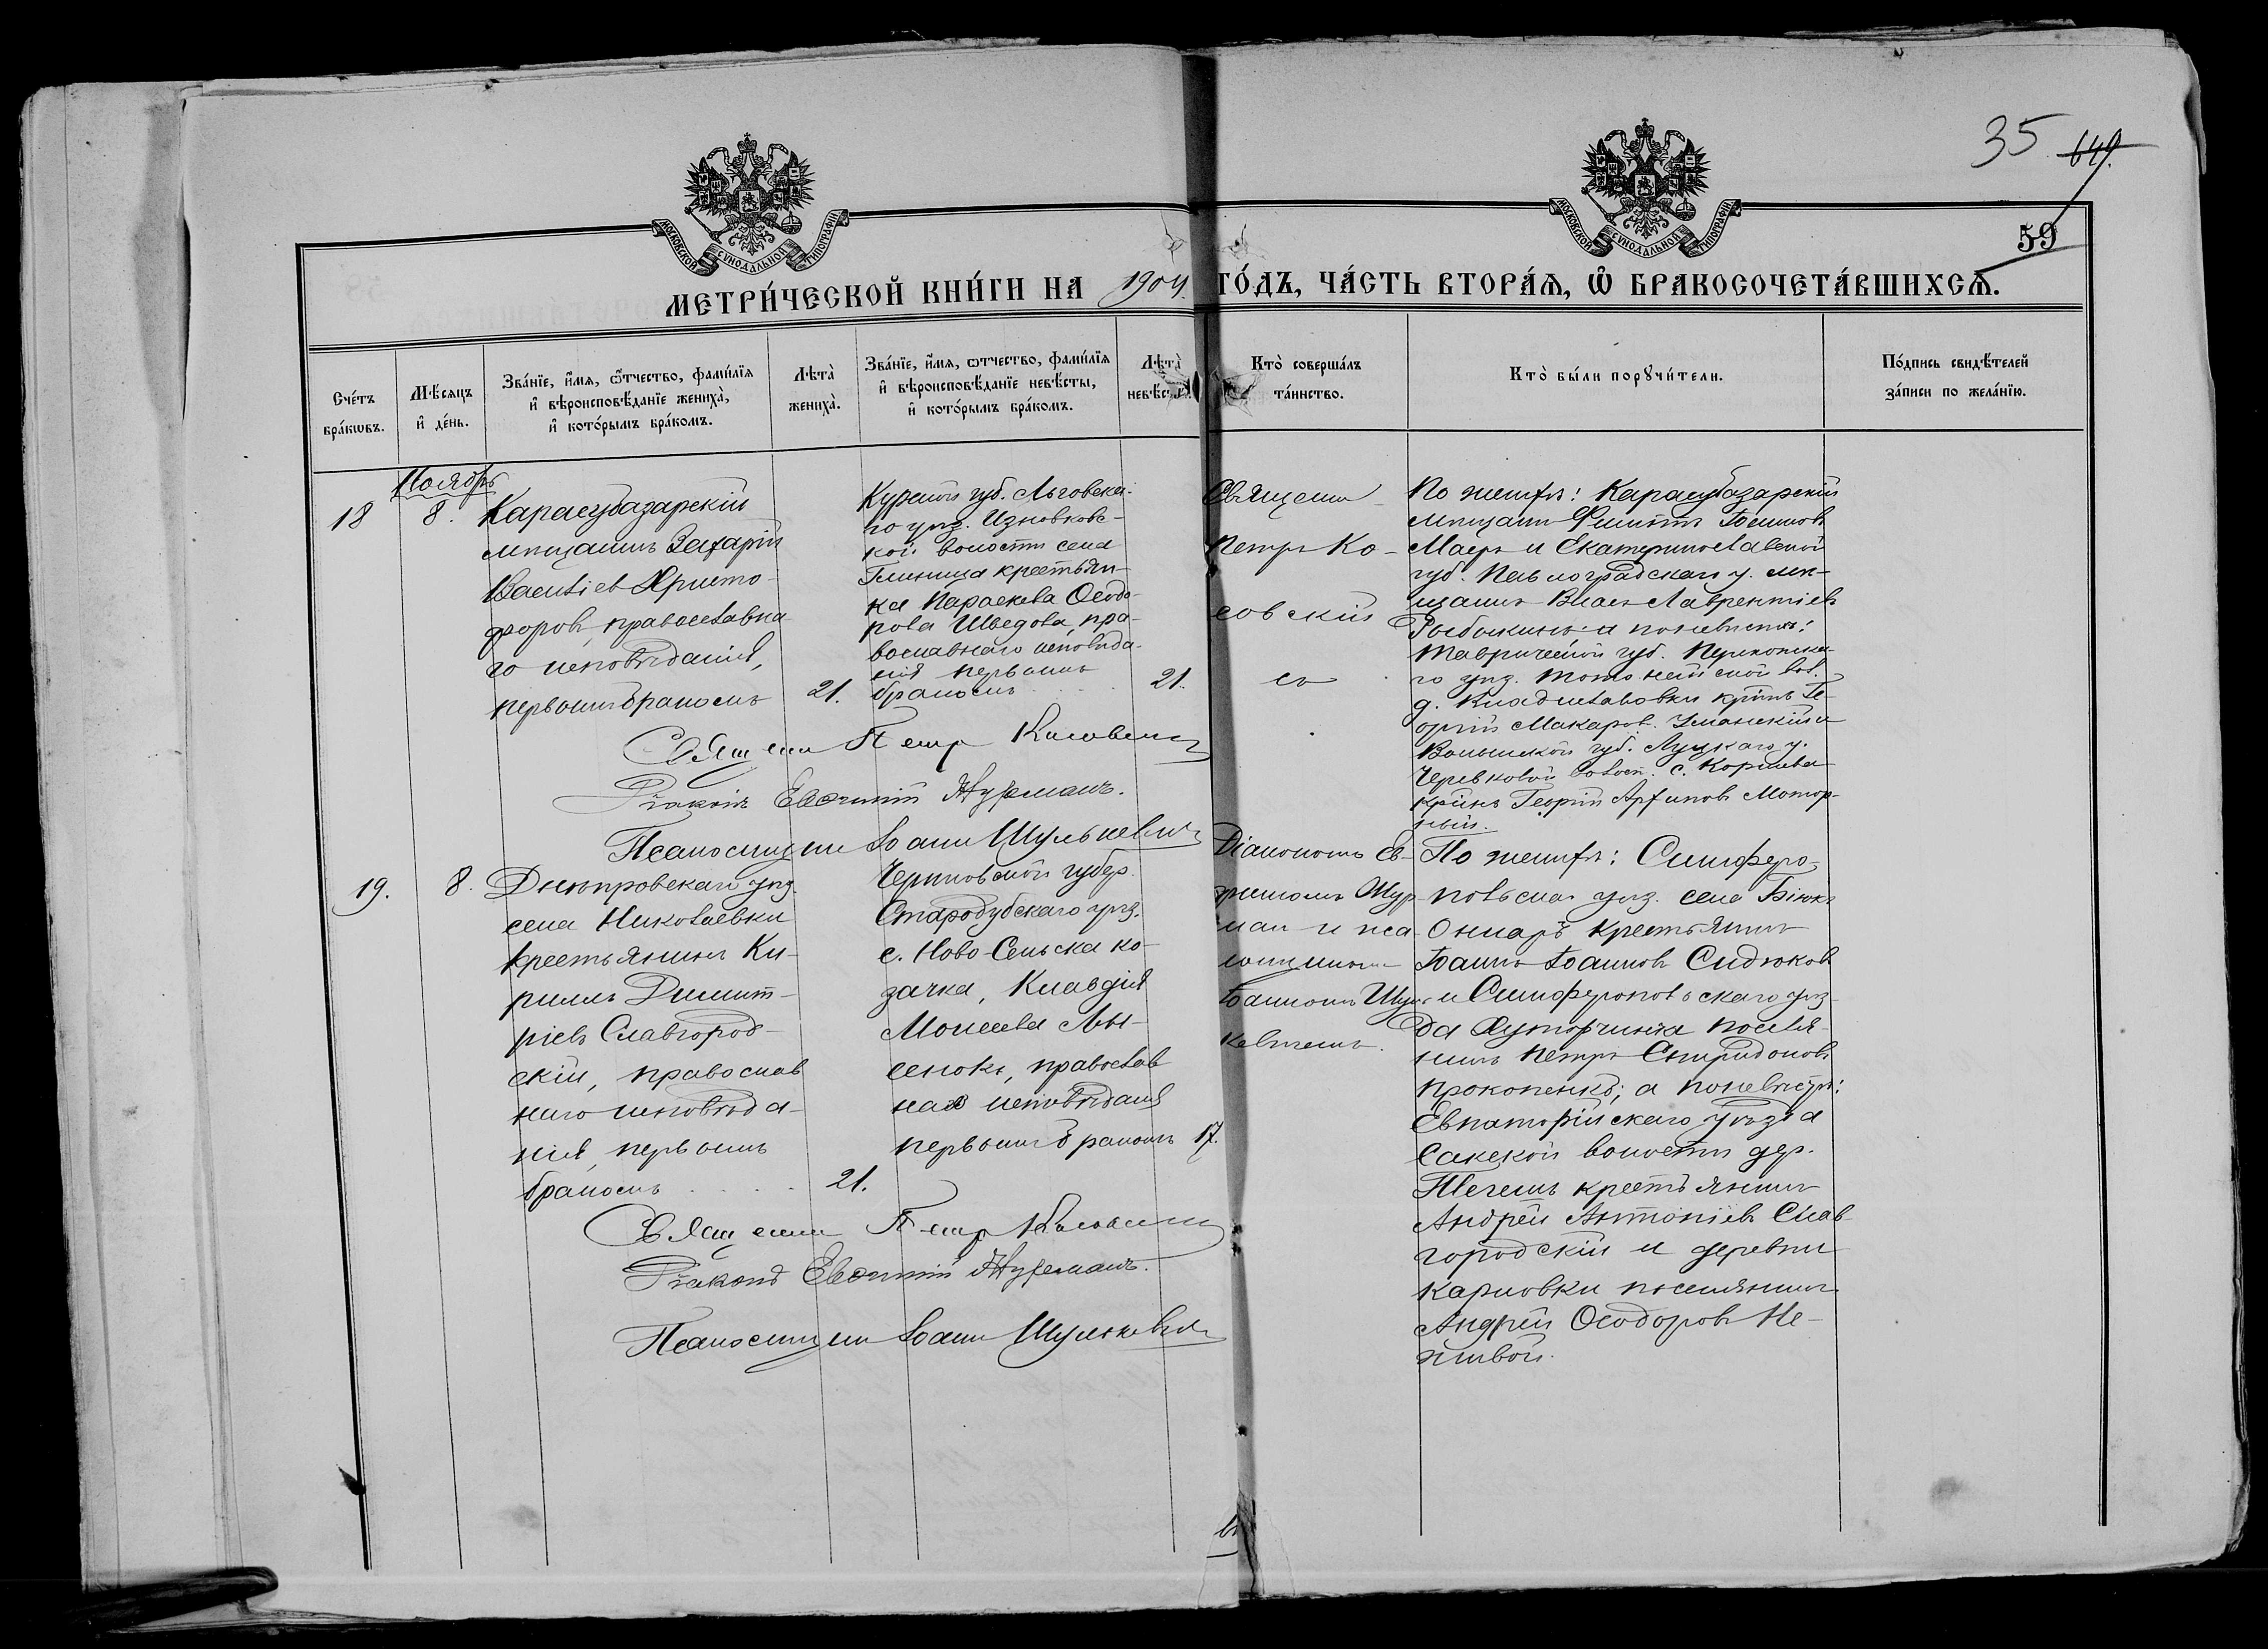 35 649.
59
МОСКОВСКОЙ СУНОДАЛЬНОЙ ТИПОГРАФІИ
МОСКОВСКОЙ СУНОДАЛЬНОЙ ТИПОГРАФІИ
МЕТРИ́ЧЕСКОЙ КНИ́ГИ НА 1904. ГО́ДЪ, ЧА́СТЬ ВТОРА́Ѧ, Ѽ БРАКОСОЧЕТА́ВШИХСѦ.
Сче́тъ
бра́кѡвъ.
Мѣ́сѧцъ
и҆ де́нь.
Зва́нїе, и҆́мѧ, ѻ҆́тчество, фами́лїѧ
и҆ вѣроисповѣ́данїе жениха̀,
и҆ кото́рымъ бра́комъ.
Лѣта̀
жениха̀.
Зва́нїе, и҆́мѧ, ѻ҆тчество, фами́лїѧ
и҆ вѣроисповѣ́данїе невѣ́сты,
и҆ кото́рымъ бра́комъ.
Лѣта̀
невѣ́сты.
Кто̀ соверша́лъ
та́инство.
Кто̀ бы́ли порꙋчи́тели.
По́дпись свидѣ́телей
за́писи по жела́нїю.
Ноябрь
18
8.
Карасубазарскій
мѣщанинъ Захарій
Васильевъ Христо-
форовъ, православна
го исповѣданія,
первымъ бракомъ
21.
Курской губ. Льговска-
го уѣз. Износковс-
кой волости села
Глиница крестьян-
ка Параскева Ѳеодо-
рова Шведова, пра-
вославнаго исповѣда-
нія первымъ
бракомъ
21.
Священн
Петръ Ко-
совскій
съ
По женихѣ: Карасубазарскій
мѣщанинъ Филиппъ Іосифовъ
Маеръ и Екатеринославской
губ. Павлоградскаго у. мѣ-
щанинъ Власъ Лаврентіевъ
Рыбалкинъ; а по невѣстѣ:
Таврической губ. Перекопска-
го уѣз. вол.
д. Владиславовки кр-нинъ Ге-
оргій Макаровъ Уманскій и
Волынской губ. Луцкаго у.
волост. с. Коршева
кр-нинъ Георгій Архиповъ Мотор-
ный.
Священн Петр Косовскій
Діаконъ Евѳимій Журманъ.
Псаломщикъ Іоаннъ Шулькевичъ
19.
8.
Днѣпровскаго уѣз.
села Николаевки
крестьянинъ Ки-
риллъ Димит-
ріевъ Славгород-
скій, православ
наго исповѣда-
нія, первымъ
бракомъ
21.
Черниговской губер.
Стародубскаго уѣз.
с. Ново-Сельска ко-
зачка, Клавдія
Моисеева Лы-
сенокъ, православ
наго исповѣданія
первымъ бракомъ
17.
Діакономъ Ев-
ѳиміемъ Жур-
ман и пса-
ломщикомъ
Іоанномъ Шуль-
кевичемъ.
По женихѣ: Симферо-
польскаго уѣз. села Біюкъ
Онларъ крестьянинъ
Іоаннъ Іоанновъ Сидюковъ
и Симферопольскаго уѣз-
да поселя-
нинъ Петръ Спиридоновъ
Прокопенко; а по невѣстѣ:
Евпаторійскаго уѣзда
Сакской волости дер.
Тегешъ крестьянинъ
Андрей Антоніевъ Слав-
городскій и деревни
Карловки поселянинъ
Андрей Ѳеодоровъ Не-
живой.
Священн Петр Косовскій
Діаконъ Евѳимій Журманъ.
Псаломщикъ Іоаннъ Шулькевичъ